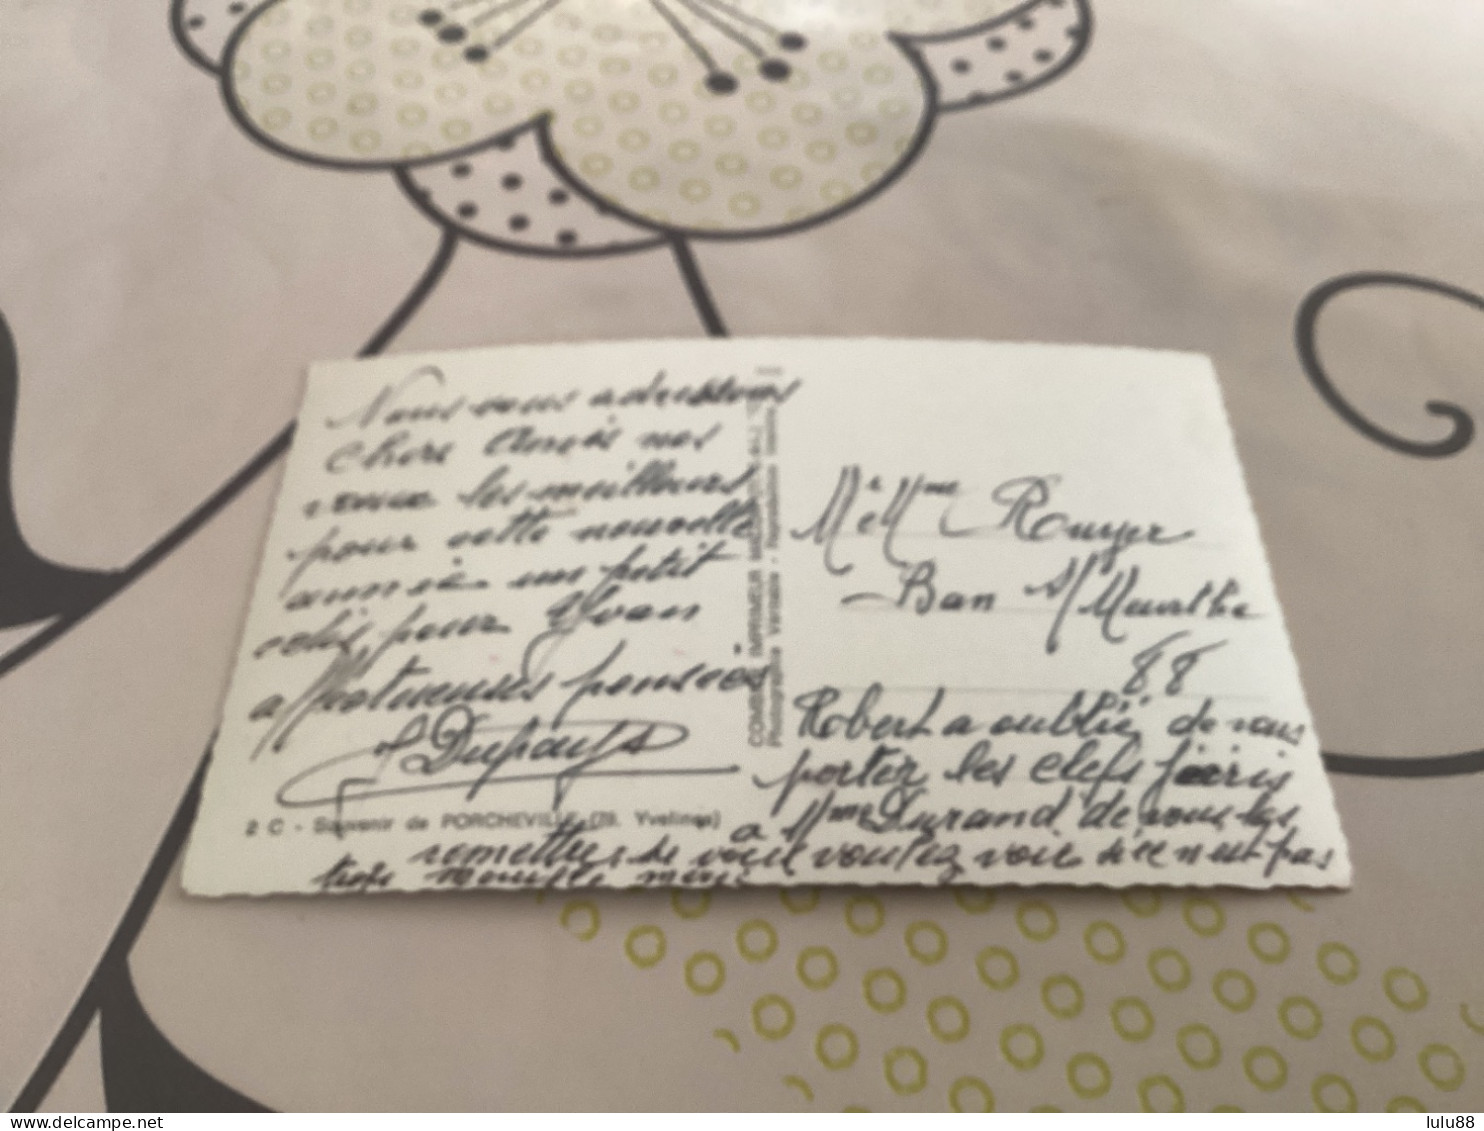 Nous vous adressons
chers Amis nos
vœux les meilleurs
pour cette nouvelle
année un petit
colis pour Yvan
affectueuses pensées
Dupays
2 C - Souvenir de PORCHEVILLE (78. Yvelines)
COMBIER IMPRIMEUR MACON
Photographie Véritable - Reproduction
Mr et Mme Rouyer
Ban s/ Meurthe
88
Robert a oublié de vous
porter les clefs j'écris
a Mme Durand de vous les
remettre si vous voulez voir si ce n'est pas
trop
delcampe.net
lulu88